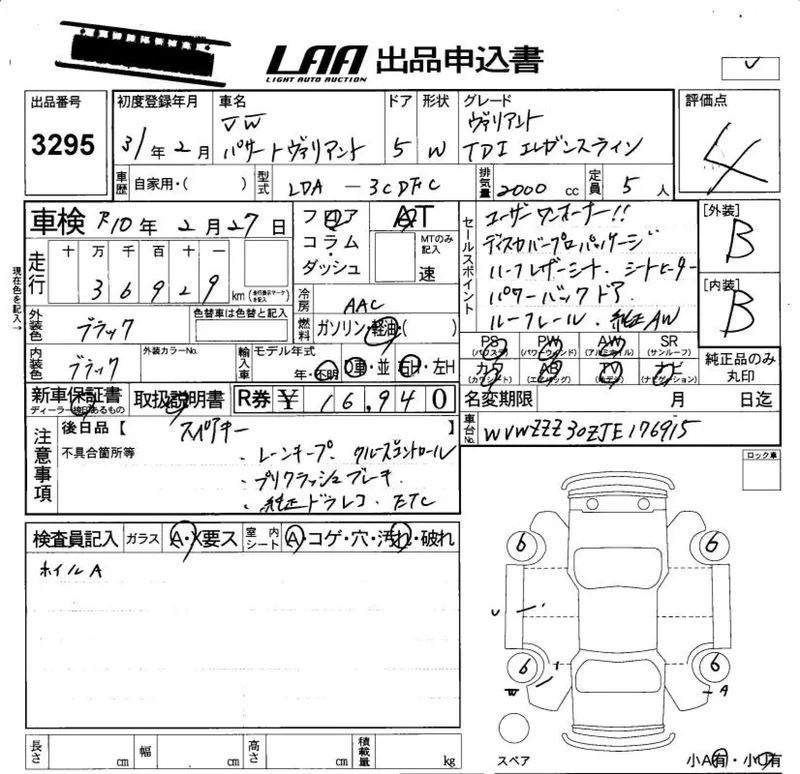 LAA 出品申込書
LIGHT AUTO AUCTION
出品番号 初度登録年月 車名 ドア 形状 グレード 評価点
3295 31年2月 VW パサートヴァリアント 5 W ヴァリアント TDI エレガンスライン 4
車歴 自家用・( ) 型式 LDA-3CDFC 排気量 2000 cc 定員 5人
車検 R10年2月27日 フロア コラム・ダッシュ AT MTのみ記入 速
走行 十 万 千 百 十 一
36929 km (走行表示マークを記入)
現在色を記入→
冷房 AAC
外装色 ブラック 色替車は色替と記入 燃料 ガソリン・軽油・( )
内装色 ブラック 外装カラーNo. 輸入車 モデル年式 年・不明 D車・並 右H・左H
セールスポイント
ユーザーワンオーナー!!
ディスカバープロパッケージ
ハーフレザーシート、シートヒーター
パワーバックドア
ルーフレール、純正AW
[外装] B
[内装] B
PS (パワステ) PW (パワーウインド) AW (アルミホイル) SR (サンルーフ)
カワ (カワシート) AB (エアバッグ) TV (テレビ) ナビ (ナビゲーション)
純正品のみ丸印
新車保証書 ディーラー捺印あるもの 取扱説明書 R券 ¥16,940
名変期限 月 日迄
注意事項 後日品【 スペアキー 】
不具合箇所等
・レーンキープ クルーズコントロール
・プリクラッシュブレーキ
・純正ドラレコ ETC
車台No. WVWZZZ3CZJE176915
ロック車
検査員記入 ガラス A・X要ス 室内シート A・コゲ・穴・汚れ・破れ
ホイルA
6 6
6 6
A
スペア
小A有・小U有
長さ cm 幅 cm 高さ cm 積載量 kg